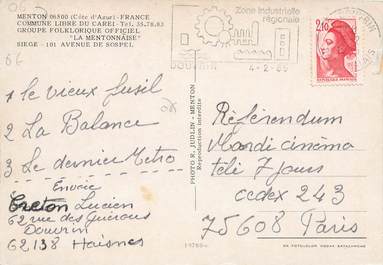 MENTON 06500 (Côte d'Azur)-FRANCE
COMMUNE LIBRE DU CAREI-Tel. 35.78.83
GROUPE FOLKLORIQUE OFFICIEL
"LA MENTONNAISE"
SIEGE - 101 AVENUE DE SOSPEL
Zone Industrielle
régionale
DOUVRIN
4-2-85
2,10
1 le vieux fusil
2 La Balance
3 Le dernier Métro
Envoie
Creton Lucien
62 rue des
Douvrin
62138 Haisnes
PHOTO R. JUDLIN - MENTON
Reproduction interdite
Référendum
Mardi cinéma
télé 7 jours
cedex 243
75608 Paris